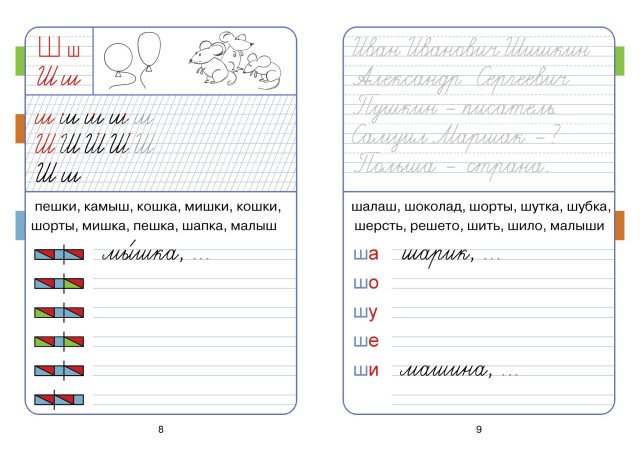 Ш ш
Ш ш
ш ш ш ш ш
Ш Ш Ш Ш Ш
Ш ш
пешки, камыш, кошка, мишки, кошки,
шорты, мишка, пешка, шапка, малыш
мы́шка, ...
8
Иван Иванович Шишкин
Александр Сергеевич
Пушкин – писатель
Самуил Маршак – ?
Польша – страна.
шалаш, шоколад, шорты, шутка, шубка,
шерсть, решето, шить, шило, малыши
ша шарик, ...
шо
шу
ше
ши машина, ...
9